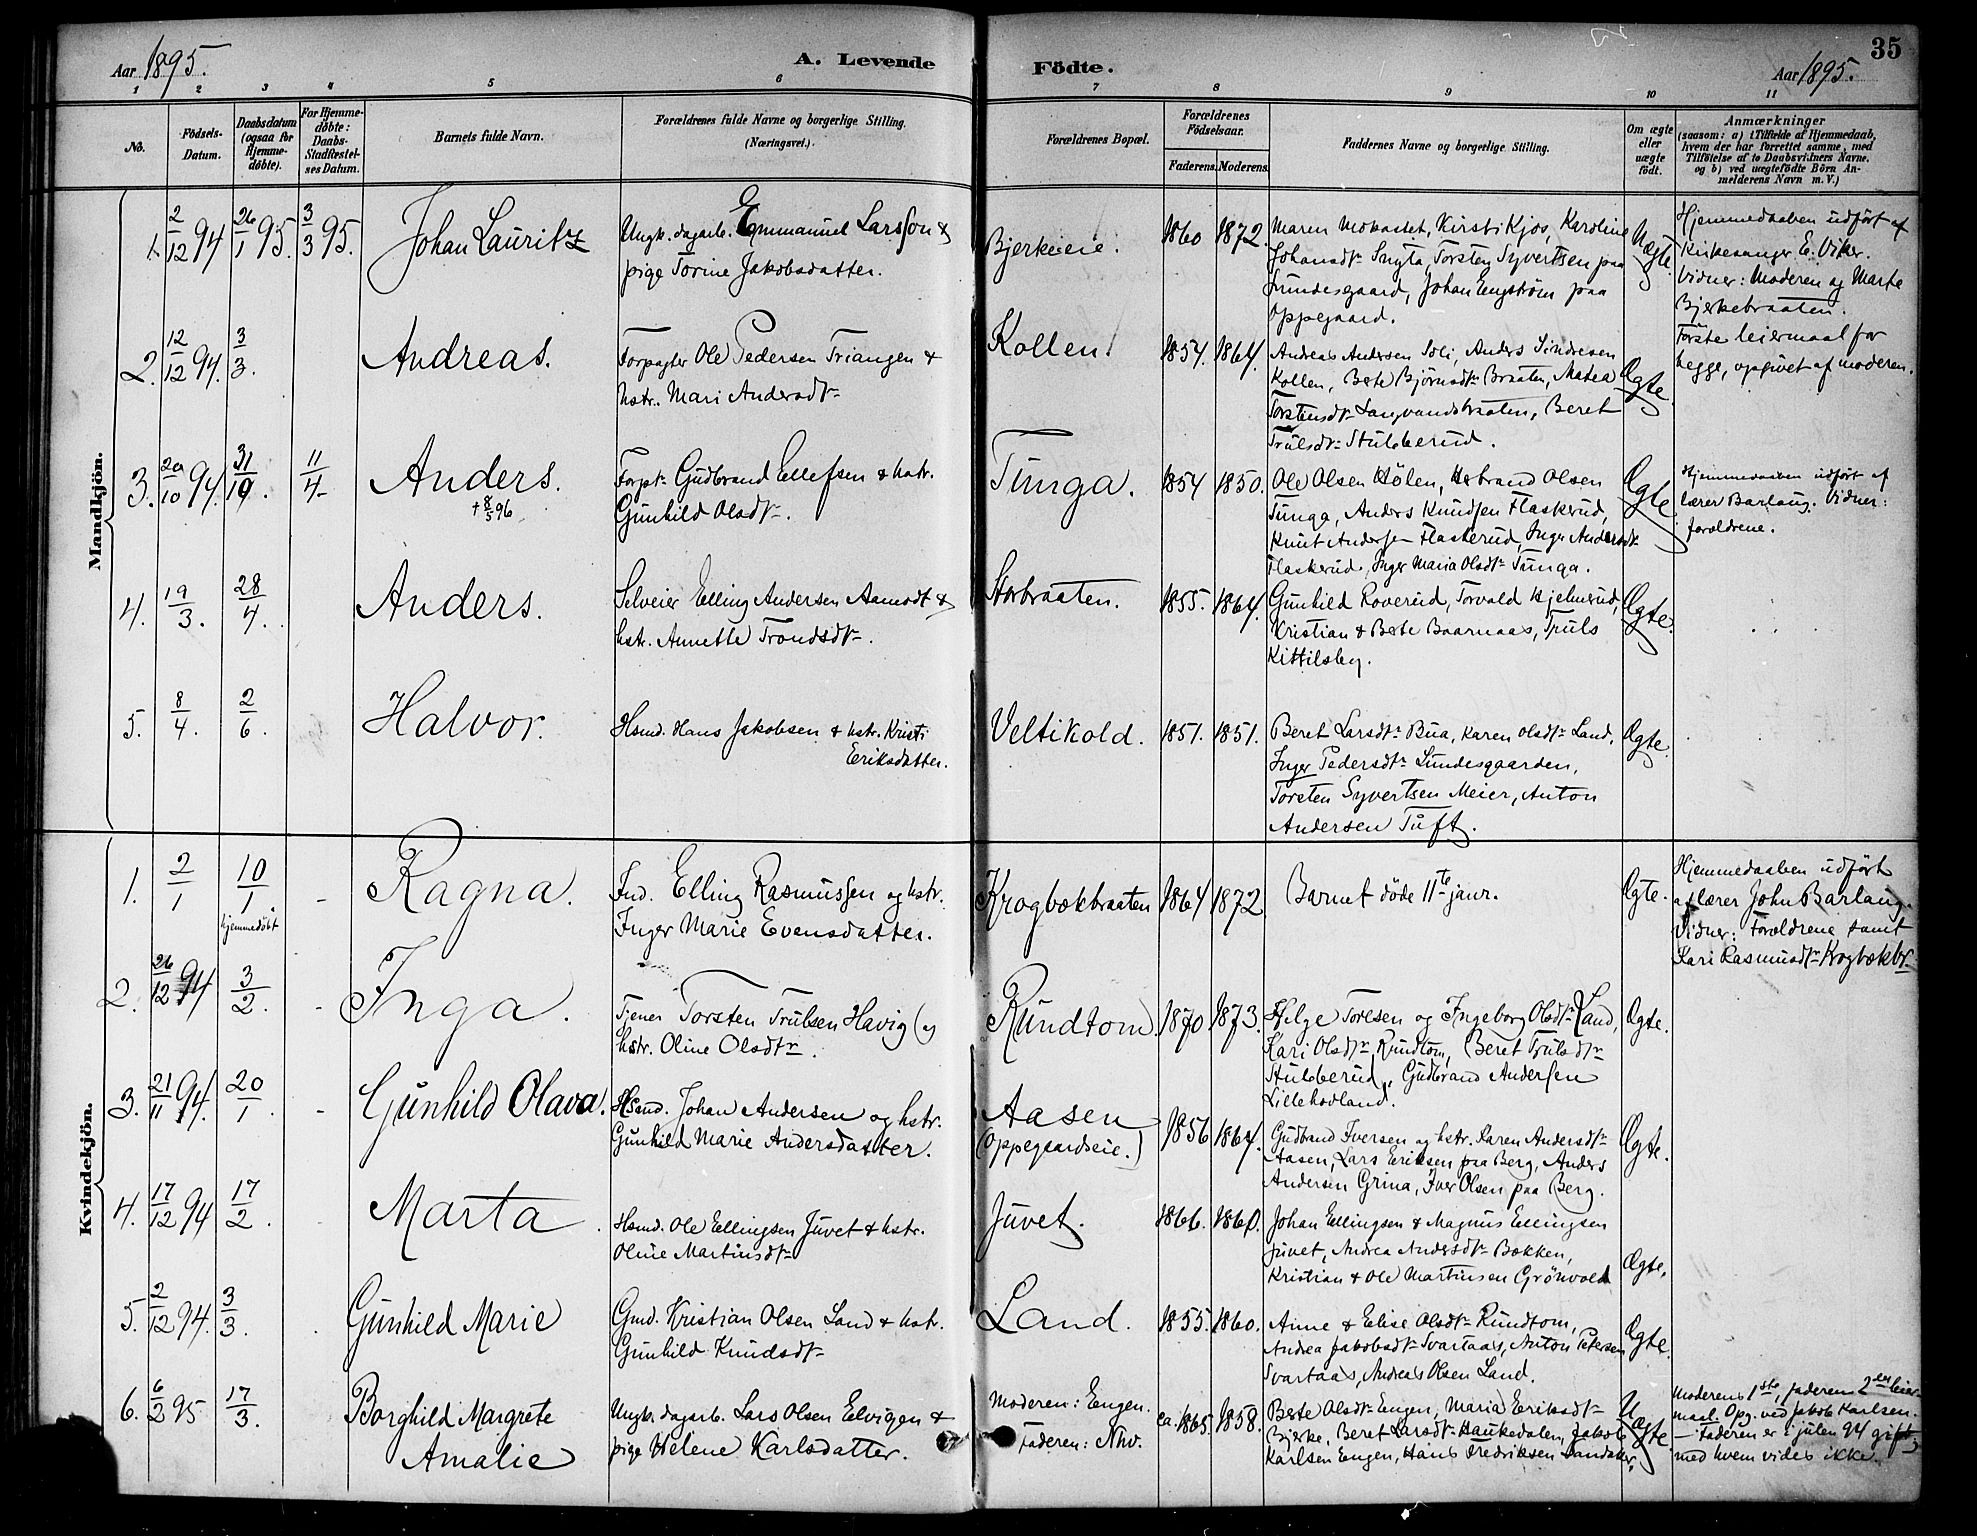 Aar 1895.
A. Levende
Födte.
Aar 1895.
35
1 2 3 4 5 6 7 8 9 10 11
No.
Födsels-
Datum.
Daabsdatum
(ogsaa for
Hjemme-
döbte).
For Hjemme-
döbte:
Daabs-
Stadfæstel-
ses Datum.
Barnets fulde Navn.
Forældrenes fulde Navne og borgerlige Stilling.
(Næringsvei.)
Forældrenes Bopæl.
Forældrenes
Födselsaar.
Faderens. Moderens.
Faddernes Navne og borgerlige Stilling.
Om ægte
eller
uægte
födt.
Anmærkninger
(saasom: a) i Tilfælde af Hjemmedaab,
hvem der har forrettet samme, med
Tilföielse af to Daabsvidners Navne.
og b) ved uægtefödte Börn An-
melderens Navn m. V.)
Mandkjön.
1. 2/12 94 26/1 95. 3/3 95. Johan Lauritz
Ungk. dagarb. Emmanuel Larsson &
pige Torine Jakobsdatter.
Bjerkeeie. 1860 1872.
Maren Mobastet, Kirsti Kjos, Karoline
Johansdtr Snyta, Torsten Syvertsen paa
Lundesgaard, Johan Engström paa
Oppegaard.
Uægte.
Hjemmedaaben udfört af
Kirkesanger E. Viker.
Vidner: Moderen og Marte
Bjerkebraaten.
Förste leiermaal for
begge, opgivet af moderen.
2. 12/12 94. 3/3. Andreas.
Forpagter Ole Pedersen Triangen &
hstr. Mari Andersdtr
Kollen. 1854. 1864.
Andreas Andersen Soli, Anders Sindresen
Kollen, Berte Björnsdtr Braaten, Matea
Torstensdtr Langvandsbraaten, Beret
Trulsdtr Stubberud.
Ægte.
3. 20/10 94. 31/10. 11/4 Anders.
+ 8/5 96
Forpt. Gudbrand Ellefsen & hstr.
Gunhild Olsdtr.
Tunga. 1854 1850.
Ole Olsen Hölen, Herbrand Olsen
Tunga, Anders Knudsen Flaskerud,
Knut Andersen Flaskerud, Inger Andersdtr
Flaskerud, Inger Maria Olsdtr Tunga.
Ægte
Hjemmedaaben udfört af
lærer Barlaug. Vidner:
forældrene.
4. 19/3. 28/4. Anders.
Selveier Elling Andersen Aamodt &
hstr. Annette Trondsdtr.
Storbraaten. 1855. 1864.
Gunhild Roverud, Torvald Hjelmerud,
Kristian & Berte Baarnaas, Truls
Kittilsby.
Ægte.
5. 8/4. 2/6. Halvor.
Hsmd. Hans Jakobsen & hstr. Kristi
Eriksdatter.
Veltikold. 1851. 1851.
Beret Larsdtr Bua, Karen Olsdtr Land,
Inger Pedersdtr Lundesgaarden,
Torsten Syvertsen Meier, Anton
Andersen Tuft.
Ægte.
Kvindekjön.
1. 2/1 10/1 hjemmedöbt - Ragna.
Ind. Elling Rasmussen og hstr.
Inger Marie Evensdatter.
Krogbækbraaten 1864 1872
Barnet döde 11te janr.
Ægte.
Hjemmedaaben udfört
af lærer John Barlaug.
Vidner: Forældrene samt
Kari Rasmusdtr Krogbækbr.
2. 26/12 94 3/2. - Inga.
Tjener Torsten Trulsen Havig (og
hstr. Oline Olsdtr.
Rundtom. 1870 1873.
Helge Toresen og Ingeborg Olsdtr Land,
Kari Olsdtr Rundtom, Beret Trulsdtr
Stubberud, Gudbrand Andersen
Lillehodland.
Ægte.
3. 21/11 94. 20/1. - Gunhild Olava.
Hsmd. Johan Andersen og hstr.
Gunhild Marie Andersdatter.
Aasen
(Oppegaardseie.) 1856 1864.
Gudbrand Iversen og hstr. Karen Andersdtr
Aasen, Lars Eriksen paa Berg, Anders
Andersen Grina, Iver Olsen paa Berg.
Ægte.
4. 17/12 94 17/2. Marta.
Hsmd. Ole Ellingsen Juvet & hstr.
Oline Martinsdtr
Juvet. 1866. 1860.
Johan Ellingsen & Magnus Ellingsen
Juvet, Andrea Andersdtr Bakken,
Kristian & Ole Martinsen Grönvold
Ægte.
5. 2/12 94. 3/3. Gunhild Marie
Gmd. Kristian Olsen Land & hstr.
Gunhild Knudsdtr
Land. 1855. 1860.
Anne & Elise Olsdtr Rundtom,
Andrea Jakobsdtr Svartaas, Anton Petersen
Svartaas, Andreas Olsen Land.
Ægte.
6. 6/2 95 17/3. Borghild Margrete
Amalie
Ungk. dagarb. Lars Olsen Elvigen &
pige Helene Karlsdatter.
Moderen: Engen.
Faderen: Nhv. ca. 1865. 1858.
Berte Olsdtr Engen, Maria Eriksdtr
Bjerke, Beret Larsdtr Haukedalen, Jakob
Karlsen Engen, Hans Fredriksen Sandaker.
Uægte.
Moderens 1ste, faderens 2det leier-
maal. Opg. ved Jakob Karlsen.
— Faderen er i julen 94 gift;
med hvem vides ikke.